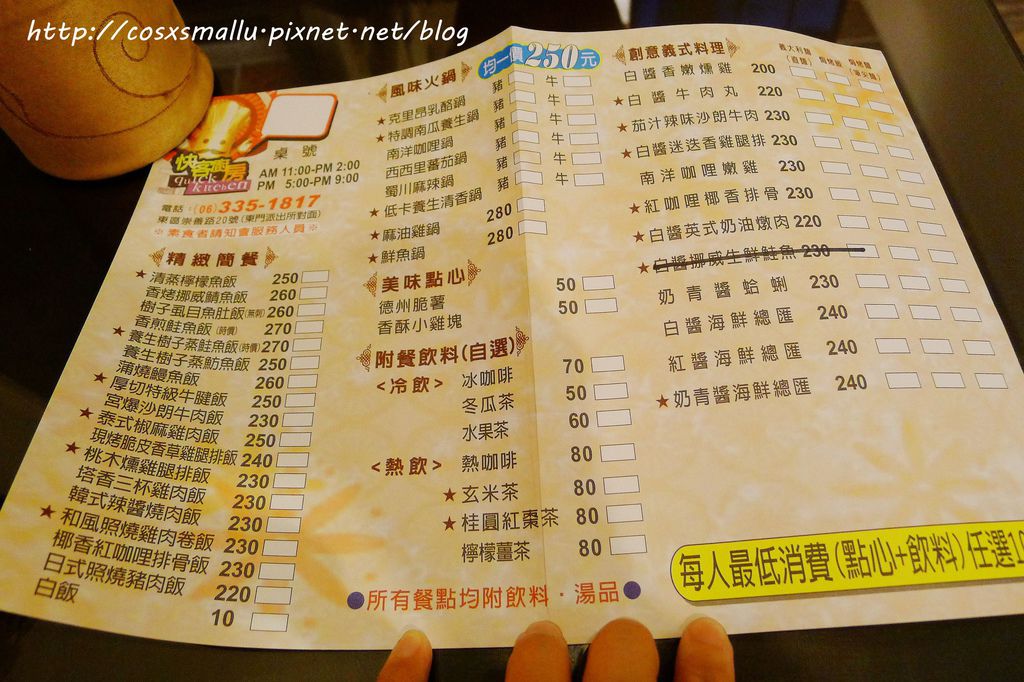 http://cosxsmallu.pixnet.net/blog
快客廚房
Quick kitchen
桌號
AM 11:00-PM 2:00
PM 5:00-PM 9:00
電話:(06)335-1817
東區崇善路20號(東門派出所對面)
※素食者請知會服務人員※
精緻簡餐
★清蒸檸檬魚飯 250
香烤挪威鯖魚飯 260
樹子虱目魚肚飯(無刺) 260
香煎鮭魚飯(時價) 270
★養生樹子蒸鮭魚飯(時價) 270
養生樹子蒸魴魚飯 250
蒲燒鰻魚飯 260
★厚切特級牛腱飯 250
宮爆沙朗牛肉飯 230
★泰式椒麻雞肉飯 250
現烤脆皮香草雞腿排飯 240
★桃木燻雞腿排飯 230
塔香三杯雞肉飯 230
韓式辣醬燒肉飯 230
★和風照燒雞肉卷飯 230
椰香紅咖哩排骨飯 230
日式照燒豬肉飯 220
白飯 10
風味火鍋 均一價250元
★克里昂乳酪鍋 豬 牛
★特調南瓜養生鍋 豬 牛
南洋咖哩鍋 豬 牛
西西里蕃茄鍋 豬 牛
蜀川麻辣鍋 豬 牛
★低卡養生清香鍋 豬 牛
★麻油雞鍋 280
★鮮魚鍋 280
美味點心
德州脆薯 50
香酥小雞塊 50
附餐飲料(自選)
<冷飲> 冰咖啡 70
冬瓜茶 50
水果茶 60
<熱飲> 熱咖啡 80
★玄米茶 80
★桂圓紅棗茶 80
檸檬薑茶 80
●所有餐點均附飲料·湯品●
創意義式料理
義大利麵(直麵) 焗烤飯 焗烤麵
白醬香嫩燻雞 200
★白醬牛肉丸 220
★茄汁辣味沙朗牛肉 230
★白醬迷迭香雞腿排 230
南洋咖哩嫩雞 230
★紅咖哩椰香排骨 230
★白醬英式奶油燉肉 220
★白醬挪威生鮮鮭魚 230
奶青醬蛤蜊 230
白醬海鮮總匯 240
紅醬海鮮總匯 240
★奶青醬海鮮總匯 240
每人最低消費(點心+飲料)任選1